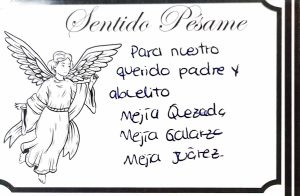 Sentido Pésame
Para nuestro
querido padre y
abuelito
Mejía Quezada
Mejía Galarza
Mejia Juárez